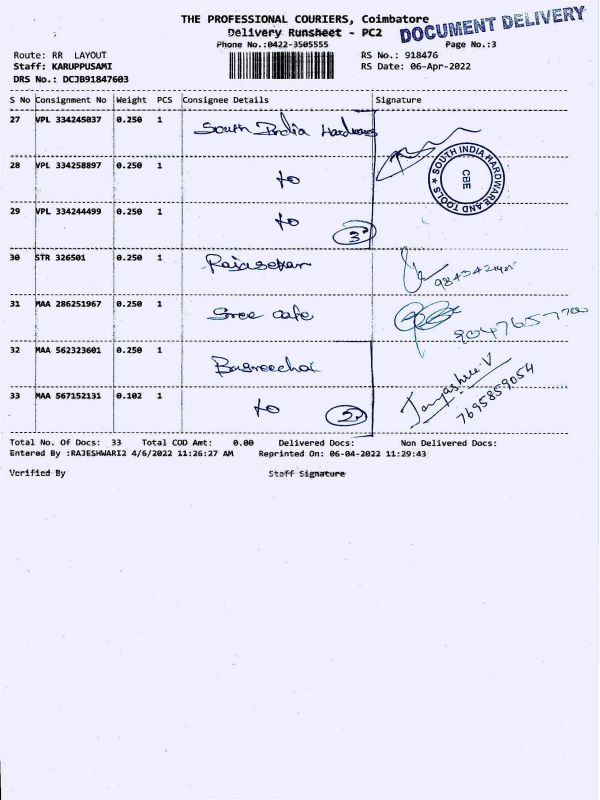 THE PROFESSIONAL COURIERS, Coimbatore
DOCUMENT DELIVERY
Delivery Runsheet - PC2
Phone No.:0422-3505555
Page No.:3
Route: RR LAYOUT
RS No.: 918476
Staff: KARUPPUSAMI
RS Date: 06-Apr-2022
DRS No.: DCJB91847603
S No Consignment No Weight PCS Consignee Details Signature
27 VPL 334245037 0.250 1 South India Hardwares
SOUTH INDIA HARDWARE AND TOOLS
CBE
28 VPL 334258897 0.250 1 to
29 VPL 334244499 0.250 1 to
3
30 STR 326501 0.250 1 Rajasekar
31 MAA 286251967 0.250 1 Sree cafe
32 MAA 562323601 0.250 1
33 MAA 567152131 0.102 1 to
7695859054
Total No. Of Docs: 33 Total COD Amt: 0.00 Delivered Docs: Non Delivered Docs:
Entered By :RAJESHWARI2 4/6/2022 11:26:27 AM Reprinted On: 06-04-2022 11:29:43
Verified By Staff Signature